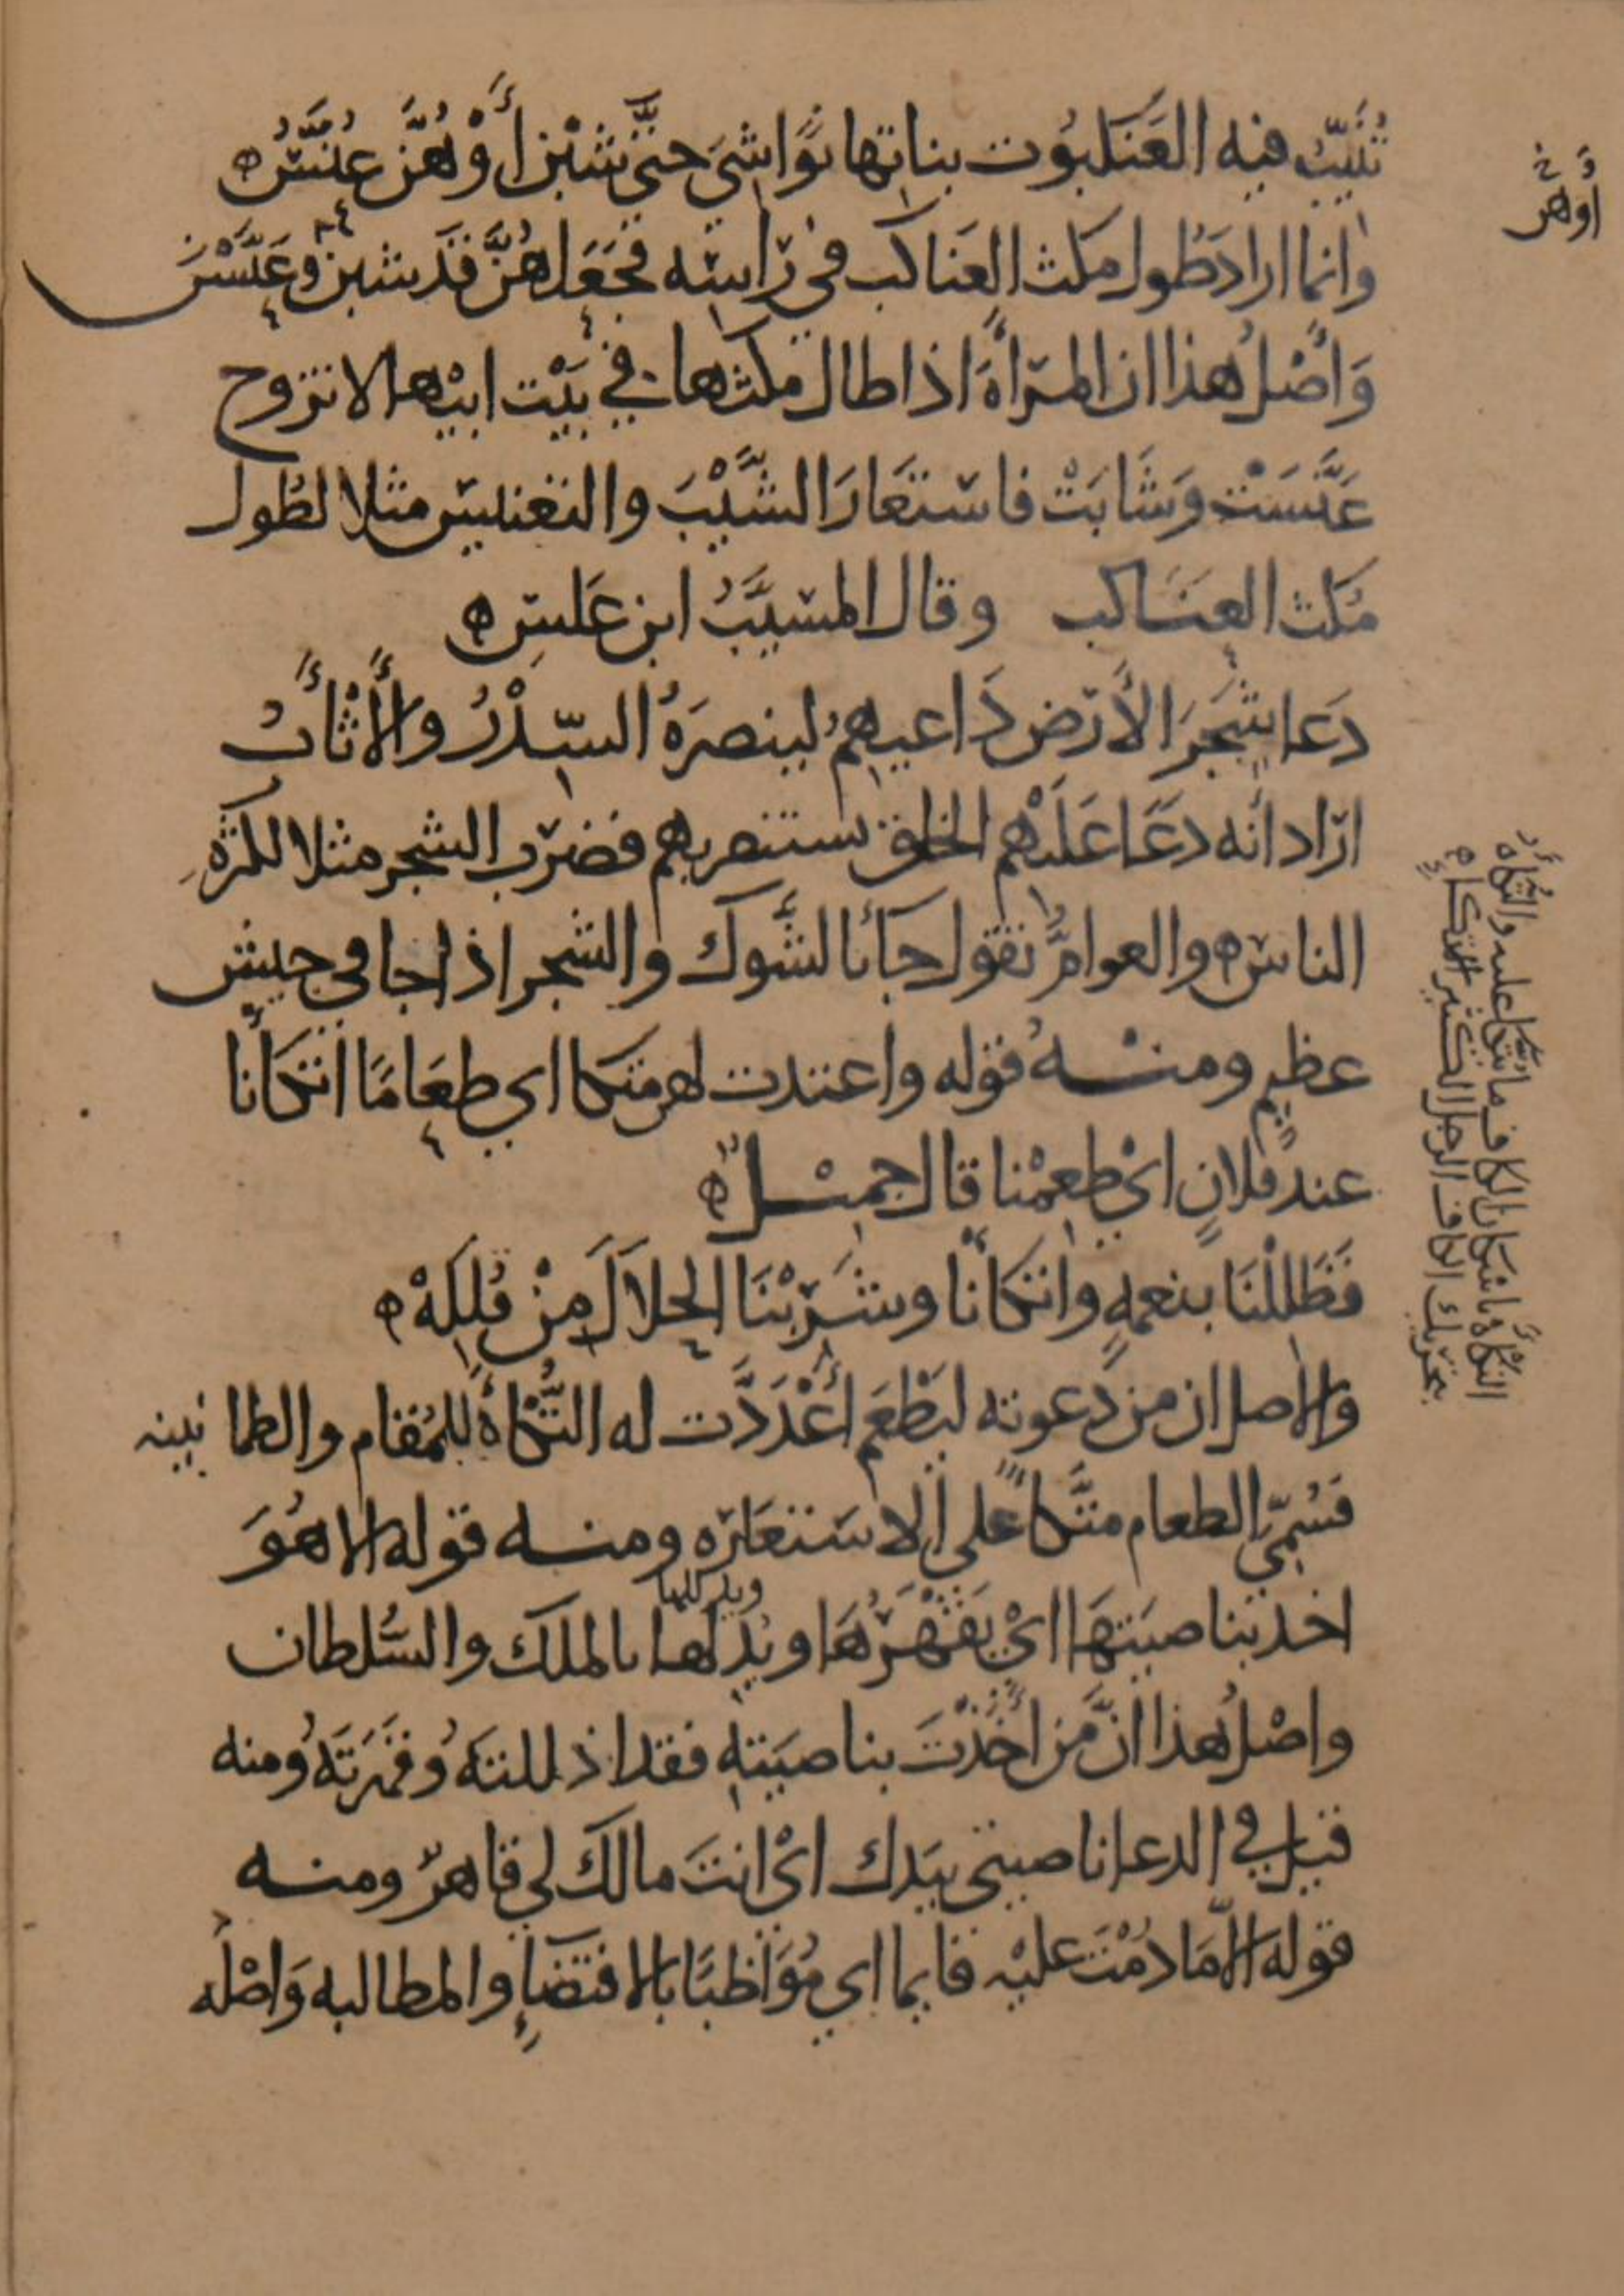 تُثَيِّبُ فيه العَنكبُوت بناتها نَوَاشيَ حتَّى شبْنَ أَوْ هُنَّ عُنَّسُ ه
وانما اراد طُول مكث العَناكب في رَاسه فجَعَلهُنَّ قَد شبن وعَنَّسْنَ
وَأصْلُ هذا ان المرأة اذا طال مكثها في بَيْت ابيْها لا تتزوج
عَنَّسَتْ وَشَابَتْ فاستَعَارَ الشَّيْبَ والتعنيس مثلا لطُول
مُكث العنَاكب وقال المسيَّبُ ابن عَلس ه
دَعا شجَرَ الأرض دَاعيهمُ لينصرَهُ السِّدْرُ والأَثْأَبُ
ارَاد انه دعَا عَليْهم الخلق يستنصر بهم فضرب الشجر مثلا لكثرةِ
الناس ه والعوامُّ تقول جَآنا بالشَّوك والشجر اذا جا في جيش
عظيم ومنه قوله واعتدت لهن متكا اي طعَامًا اتّكأنا
عند فلان ايْ طعمْنا قال جميل ه
فَظَللْنَا بنعمةٍ واتكأْنا وشَرِبْنَا الحلالَ مِنْ قُلَلِهْ ه
والاصل ان من دَعوته ليَطْعَم أَعْدَدَّت له التُّكأةَ للمُقام والطمانينه
فسُمِّي الطعام متَّكأً على الاستعَاره ومنه قوله الا هُوَ
اخذ بناصيَتهَا ايْ يَقْهَرُهَا ويُذلها بالملك والسُّلطان
واصْلُ هذا انَّ مَن أَخَذْتَ بناصيَته فقد اذللتَهُ وقهَرتَهُ ومنه
قيل في الدعا ناصيتي بيَدك ايْ انتَ مالك لي قاهرٌ ومنه
قوله الّا مَا دُمْتَ عليْه قايما اي مُوَاظبًا بالاقتضاءِ والمطالبه وَاصْله
أوَّلهن خ
التُّكْأَةُ باسكان الكاف ما يُتَّكأ عليه والتُّكَأَة
بتحريك الكاف الرجل الكثير الاتكاءِ ه